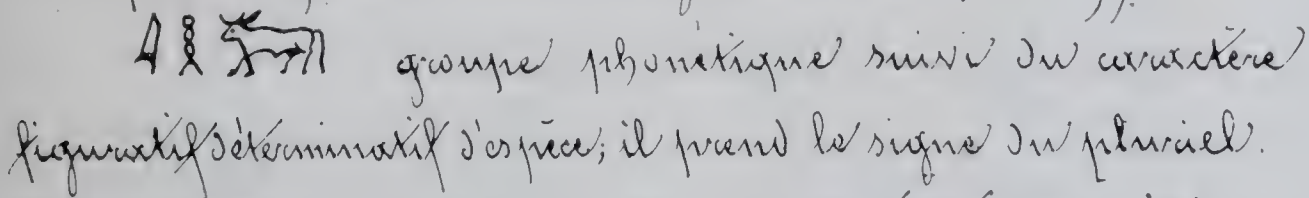 𓇋𓎛𓃒 groupe phonétique suivi du caractère
figuratif déterminatif d'espèce; il prend le signe du pluriel.